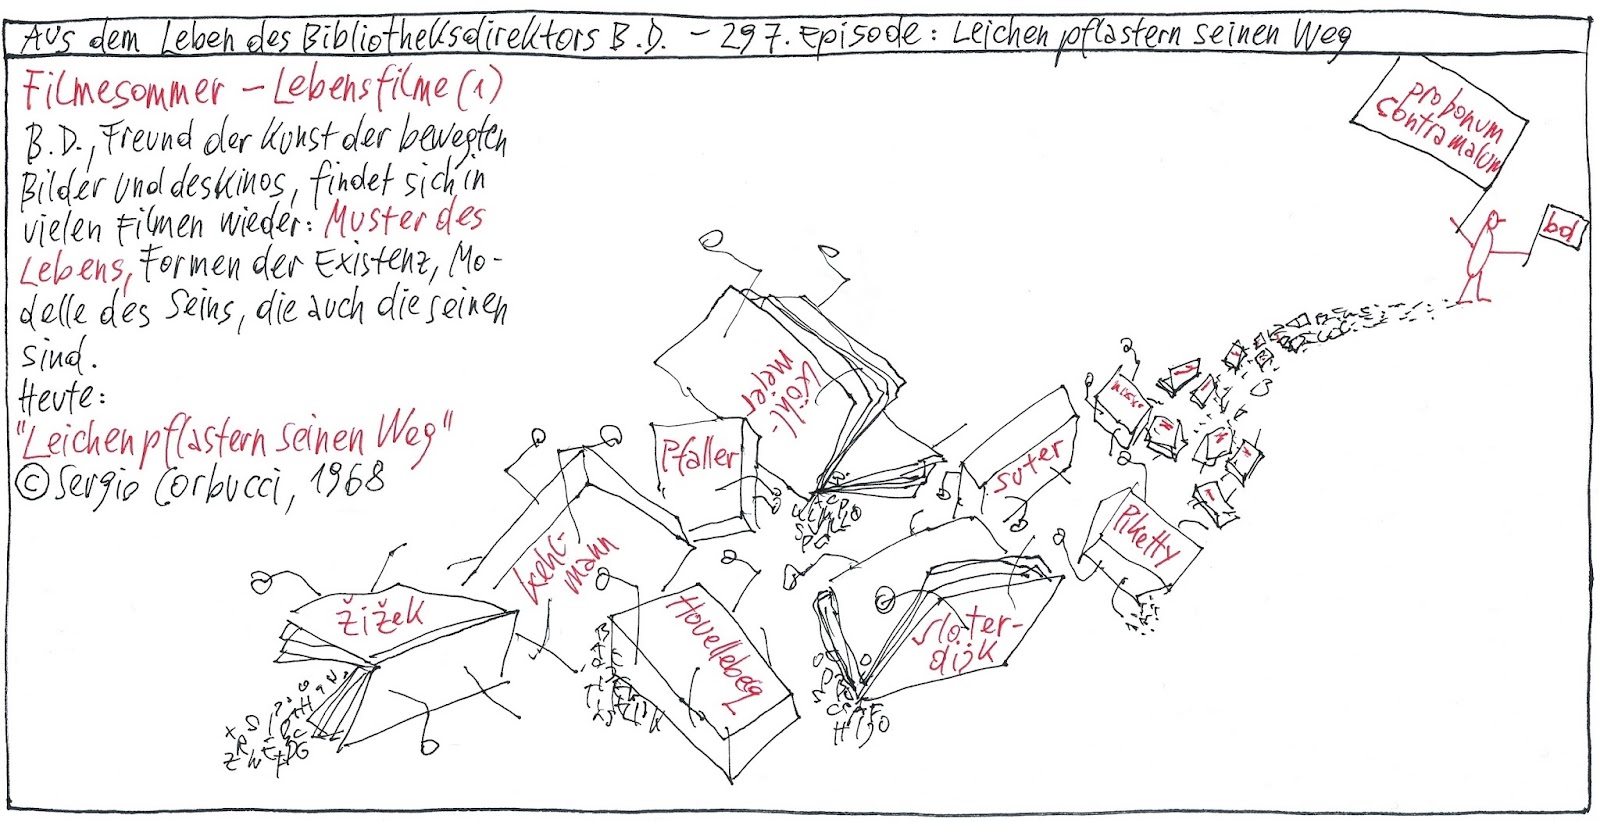 Aus dem Leben des Bibliotheksdirektors B.D. – 297. Episode: Leichen pflastern seinen Weg
Filmesommer – Lebensfilme (1)
B.D., Freund der Kunst der bewegten
Bilder und des Kinos, findet sich in
vielen Filmen wieder: Muster des
Lebens, Formen der Existenz, Mo-
delle des Seins, die auch die seinen
sind.
Heute:
"Leichen pflastern seinen Weg"
© Sergio Corbucci, 1968
pro bonum
contra malum
bd
Köhl-
meier
Pfaller
Suter
Piketty
Kehl-
mann
Žižek
Houellebecq
Sloter-
dijk